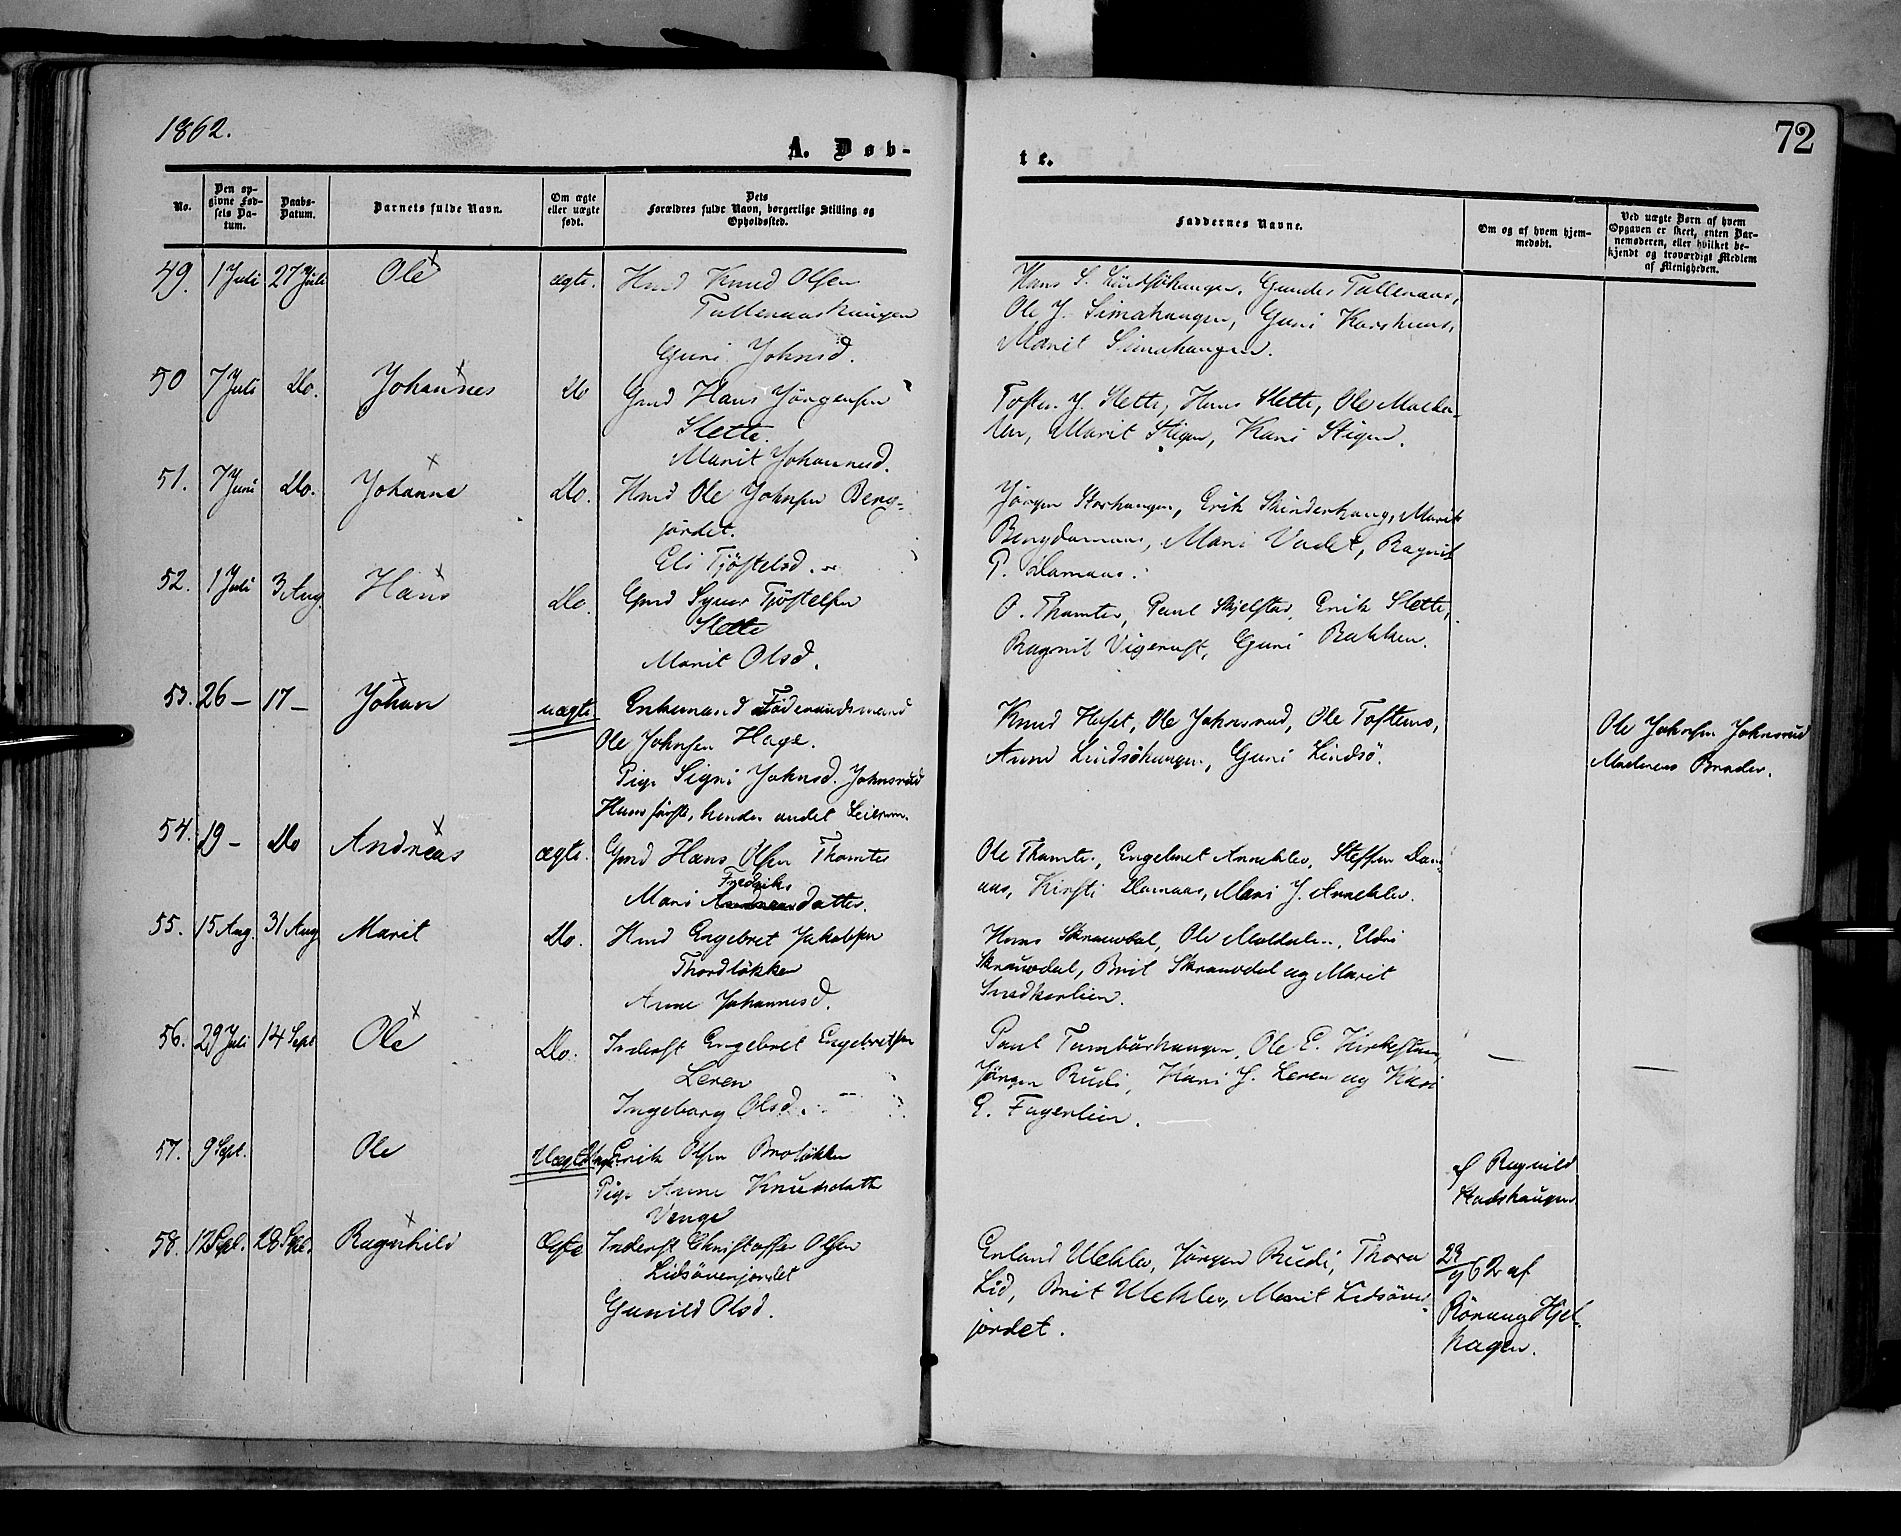 1862.
A. Døb-
te.
72
No.
Den op-
givne Fød-
sels Da-
tum.
Daabs-
Datum.
Barnets fulde Navn.
Om ægte
eller uægte
født.
Dets
Forældres fulde Navn, borgerlige Stilling og
Opholdssted.
Faddernes Navne.
Om og af hvem hjem-
medøbt.
Ved uægte Børn af hvem
Opgaven er skeet, enten Bar-
nemoderen, eller hvilket be-
kjendt og troværdigt Medlem
af Menigheden.
49. 1 Juli 27 Juli Ole ægte. Hmd Knud Olsen
Tullenaashaugen
Guri Johnsd.
Hans S. Lindsöhaugen, Gunder Tullenaas,
Ole J. Simahaugen, Guri
Marit Simahaugen.
50 7 Juli Do. Johannes Do Gmd Hans Jörgensen
Slette.
Marit Johannesd.
Tosten J. Slette, Hans Slette, Ole
Marit Stigen, Kari Stigen.
51. 7 Juni Do. Johanne Do. Hmd Ole Johnsen Berg-
jordet.
Eli Tjöstelsd.
Jörgen Storhaugen, Erik Skinderhaug, Marit
Mari Vadet, Ragnil
P. Damaas.
52. 1 Juli 3 Aug. Hans Do. Gmd Syver Tjöstelsen
Slette
Marit Olsd.
O. Thomter, Paul Skjelstad, Erik Slette,
Ragnil Vigerust, Guri Bakken.
53. 26 – 17 – Johan uægte Enkemand Föderaadsmand
Ole Johnsen Hage.
Pige Signi Johnsd. Johnsrud
Hans förste, hendes andet Leierm.
Knud Huset, Ole Johnsrud, Ole Toftemo,
Anne Lindsöhaugen, Guri Lindsö.
Ole Johnsen Johnsrud
Moderens Broder.
54. 19 – Do Andreas ægte. Gmd Hans Olsen Thomter
Fredriks
Mari Andreasdatter.
Ole Thomter, Engebret Anneklev, Steffen Dam-
aas, Kirsti Damaas, Mari J. Anneklev.
55. 15 Aug. 31 Aug Marit Do. Hmd Engebret Jakobsen
Thordlökken
Anne Johannesd.
Hans Skrauvdal, Ole Eldri
Skrauvdal, Brit Skrauvdal og Marit
Snedkerlien.
56. 29 Juli 14 Sept Ole Do. Inderst Engebret Engebretsen
Leren
Ingeborg Olsd.
Paul Tambürhaugen, Ole E. Kirkestuen
Jörgen Rudi, Kari J. Leren og Kari
E. Fagerlien.
—
—
57. 9 Sept. Ole Uægte Ungk. Erik Olsen Brolökken
Pige Anne Knudsdatter
Venge
af Ragnild
Stadshaugen
58. 12 Sept. 28 Sept. Ragnhild Ægte Inderst Christoffer Olsen
Lidsöverjordet
Gunild Olsd.
Erland Uleklev, Jörgen Rudi, Thora
Lid, Brit Uleklev, Marit Lidsöver-
jordet.
23/9 62 af
Rönnaug Hjel-
hagen.